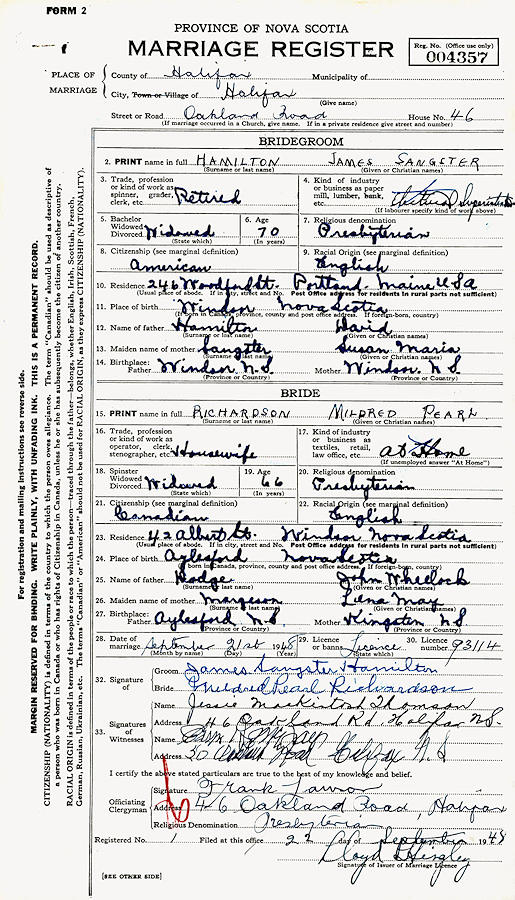 FORM 2
PROVINCE OF NOVA SCOTIA
MARRIAGE REGISTER
Reg. No. (Office use only)
004357
PLACE OF MARRIAGE
County of Halifax Municipality of
City, Town or Village of Halifax
(Give name)
Street or Road Oakland Road House No. 46
(If marriage occurred in a Church, give name. If in a private residence give street and number)
BRIDEGROOM
2. PRINT name in full HAMILTON JAMES SANGSTER
(Surname or last name) (Given or Christian names)
3. Trade, profession or kind of work as spinner, grader, clerk, etc. Retired
4. Kind of industry or business as paper mill, lumber, bank, etc.
(If labourer specify kind of work above)
5. Bachelor Widowed Divorced Widowed
(State which)
6. Age 70
(In years)
7. Religious denomination
Presbyterian
8. Citizenship (see marginal definition)
American
9. Racial Origin (see marginal definition)
English
10. Residence 246 Woodford St. Portland, Maine USA
(Usual place of abode. If in city, street and No. Post Office address for residents in rural parts not sufficient)
11. Place of birth Windsor Nova Scotia
(If born in Canada, province, county and post office address. If foreign-born, country)
12. Name of father Hamilton David
(Surname or last name) (Given or Christian names)
13. Maiden name of mother Sangster Susan Maria
(Surname or last name) (Given or Christian names)
14. Birthplace: Father Windsor N.S. Mother Windsor N.S.
(Province or Country) (Province or Country)
BRIDE
15. PRINT name in full RICHARDSON MILDRED PEARL
(Surname or last name) (Given or Christian names)
16. Trade, profession or kind of work as operator, clerk, stenographer, etc. Housewife
17. Kind of industry or business as textiles, retail, law office, etc. At Home
(If unemployed answer "At Home")
18. Spinster Widowed Divorced Widowed
(State which)
19. Age 66
(In years)
20. Religious denomination
Presbyterian
21. Citizenship (see marginal definition)
Canadian
22. Racial Origin (see marginal definition)
English
23. Residence 42 Albert St. Windsor Nova Scotia
(Usual place of abode. If in city, street and No. Post Office address for residents in rural parts not sufficient)
24. Place of birth Aylesford Nova Scotia
(If born in Canada, province, county and post office address. If foreign-born, country)
25. Name of father Hodge John Wheelock
(Surname or last name) (Given or Christian names)
26. Maiden name of mother Margeson Lena May
(Surname or last name) (Given or Christian names)
27. Birthplace: Father Aylesford N.S. Mother Kingston N.S.
(Province or Country) (Province or Country)
28. Date of marriage September 21st 1948
(Month by name) (Day) (Year)
29. Licence or banns Licence
(State which)
30. Licence number 93114
32. Signature of
Groom James Sangster Hamilton
Bride Mildred Pearl Richardson
33. Signatures of Witnesses
Name Jessie Mackintosh Thomson
Address 46 Oakland Rd. Halifax N.S.
Name
Address 30 Halifax N.S
I certify the above stated particulars are true to the best of my knowledge and belief.
Officiating Clergyman
Signature Frank Lawson
Address 46 Oakland Road, Halifax
Religious Denomination Presbyterian
Registered No. 1 Filed at this office 22 day of September 1948
Lloyd
Signature of Issuer of Marriage Licence
[SEE OTHER SIDE]
For registration and mailing instructions see reverse side.
MARGIN RESERVED FOR BINDING. WRITE PLAINLY, WITH UNFADING INK. THIS IS A PERMANENT RECORD.
CITIZENSHIP (NATIONALITY) is defined in terms of the country to which the person owes allegiance. The term "Canadian" should be used as descriptive of
a person who was born in Canada or who has rights of Citizenship in Canada, unless he or she has subsequently become the citizen of another country.
RACIAL ORIGIN is defined in terms of the people or race to which the person—traced through the father—belongs, whether English, Irish, Scottish, French,
German, Russian, Ukrainian, etc. The terms "Canadian" or "American" should not be used for RACIAL ORIGIN, as they express CITIZENSHIP (NATIONALITY).